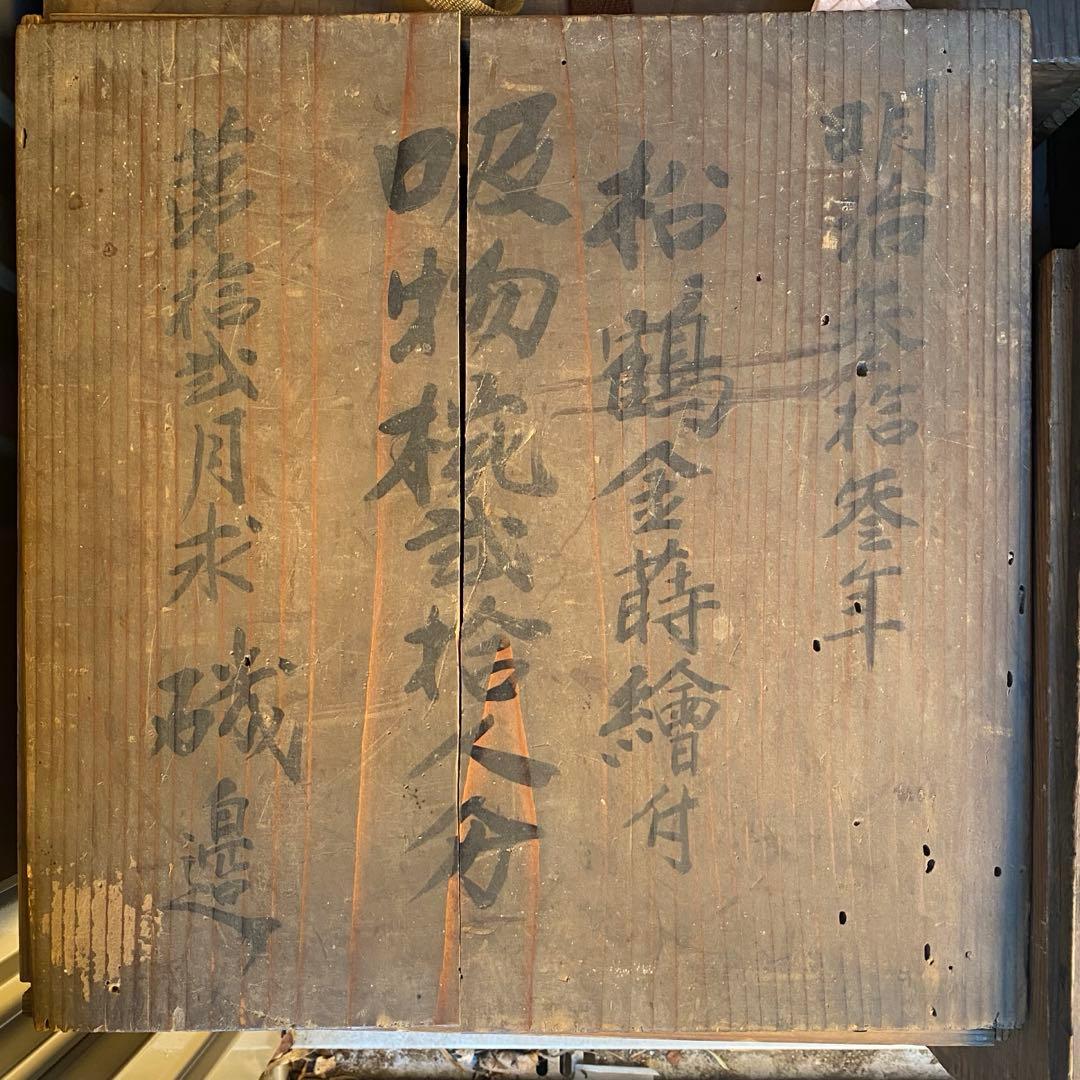 明治参拾参年
松鶴金蒔繪付
吸物椀弐拾人分
第拾弐月求 磯邉